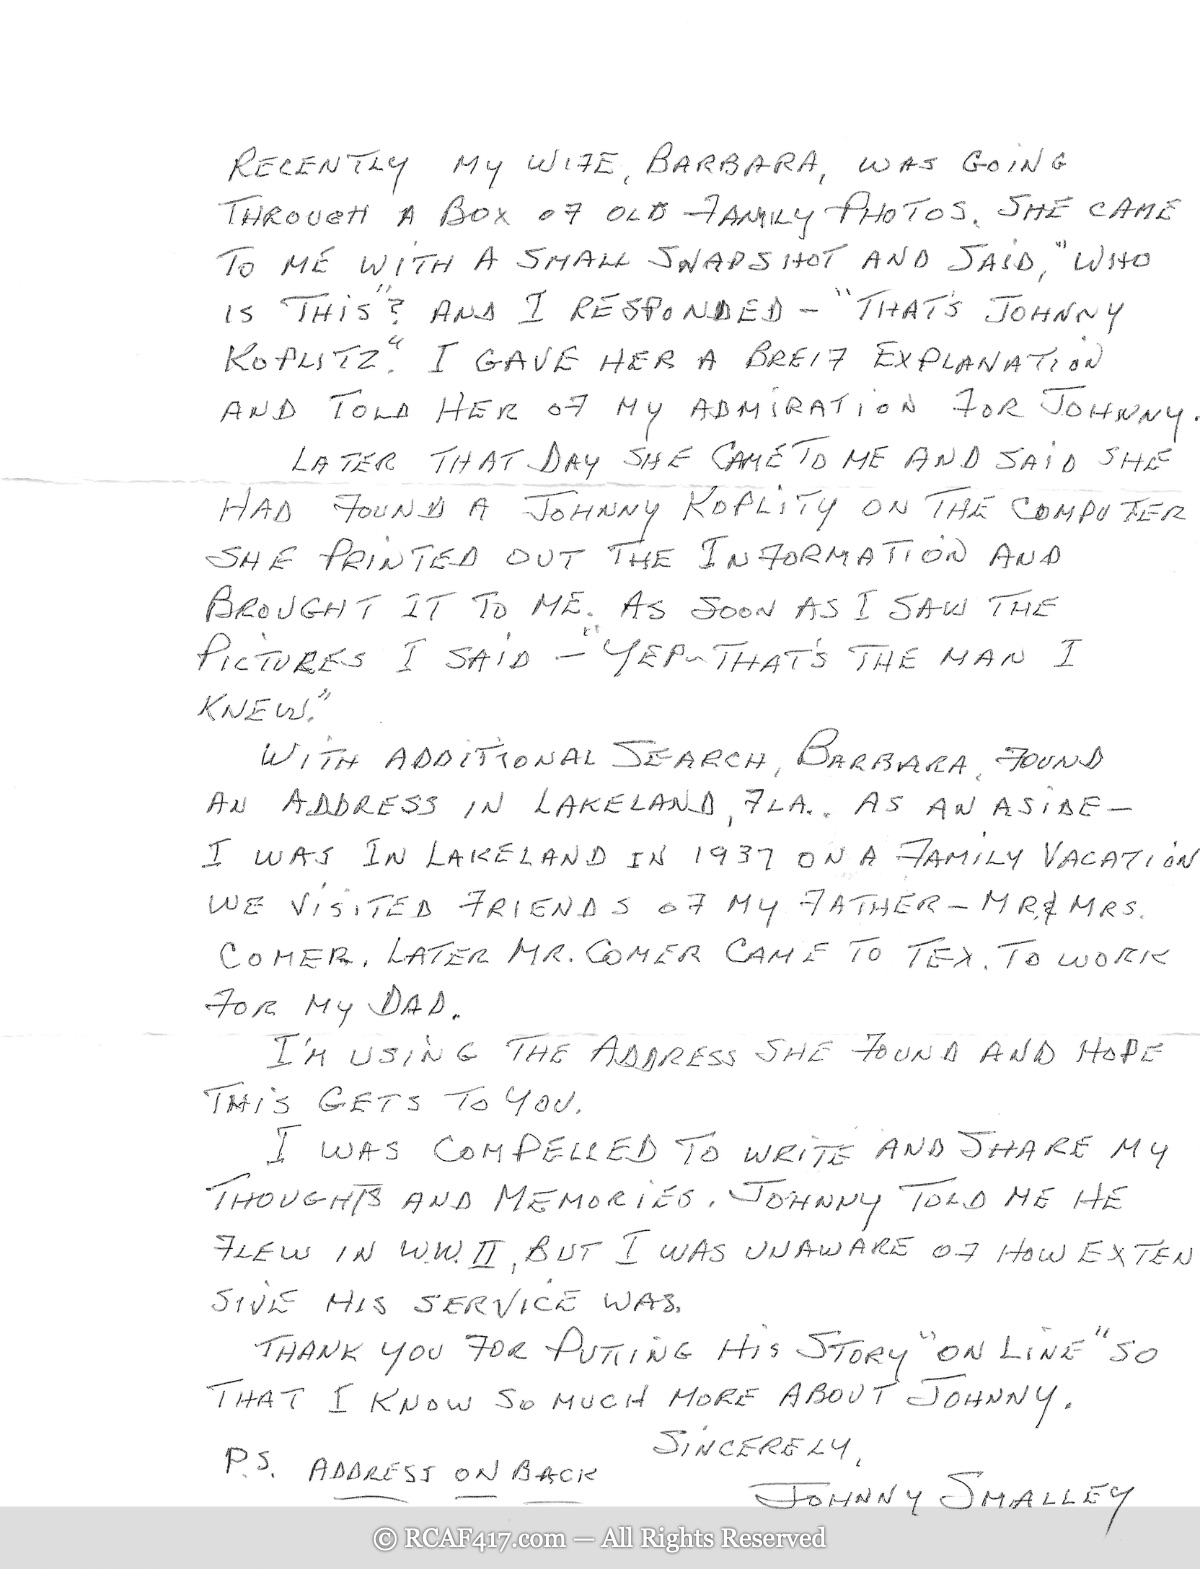 RECENTLY MY WIFE, BARBARA, WAS GOING
THROUGH A BOX OF OLD FAMILY PHOTOS. SHE CAME
TO ME WITH A SMALL SNAPSHOT AND SAID, "WHO
IS THIS"? AND I RESPONDED - "THAT'S JOHNNY
KOPLITZ". I GAVE HER A BREIF EXPLANATION
AND TOLD HER OF MY ADMIRATION FOR JOHNNY.
LATER THAT DAY SHE CAME TO ME AND SAID SHE
HAD FOUND A JOHNNY KOPLITY ON THE COMPUTER
SHE PRINTED OUT THE INFORMATION AND
BROUGHT IT TO ME. AS SOON AS I SAW THE
PICTURES I SAID - "YEP - THAT'S THE MAN I
KNEW."
WITH ADDITIONAL SEARCH, BARBARA, FOUND
AN ADDRESS IN LAKELAND, FLA.. AS AN ASIDE -
I WAS IN LAKELAND IN 1937 ON A FAMILY VACATION
WE VISITED FRIENDS OF MY FATHER - MR. & MRS.
COMER. LATER MR. COMER CAME TO TEX. TO WORK
FOR MY DAD.
I'M USING THE ADDRESS SHE FOUND AND HOPE
THIS GETS TO YOU.
I WAS COMPELLED TO WRITE AND SHARE MY
THOUGHTS AND MEMORIES. JOHNNY TOLD ME HE
FLEW IN W.W. II, BUT I WAS UNAWARE OF HOW EXTEN
SIVE HIS SERVICE WAS.
THANK YOU FOR PUTTING HIS STORY "ON LINE" SO
THAT I KNOW SO MUCH MORE ABOUT JOHNNY.
SINCERELY,
P.S. ADDRESS ON BACK
JOHNNY SMALLEY
© RCAF417.com — All Rights Reserved